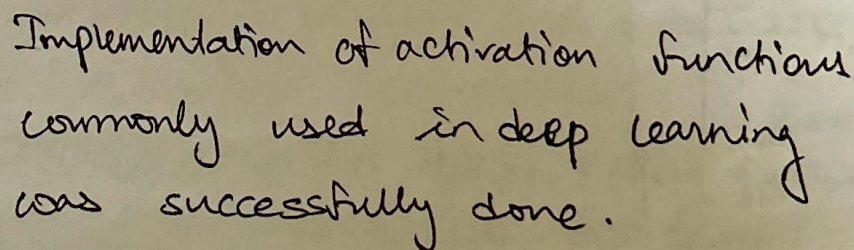 Implementation of activation functions
commonly used in deep learning
was successfully done.